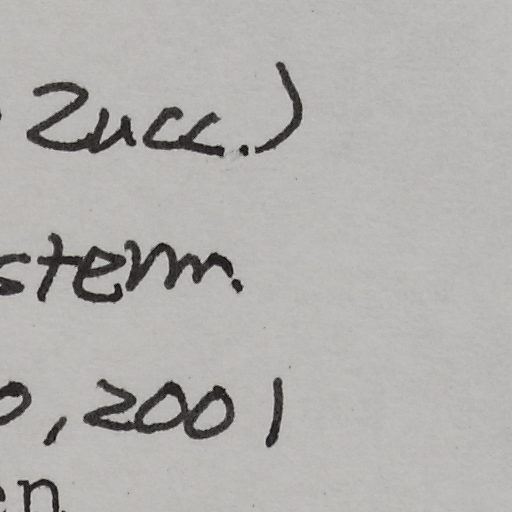 Zucc.)
sterm.
0, 2001
en